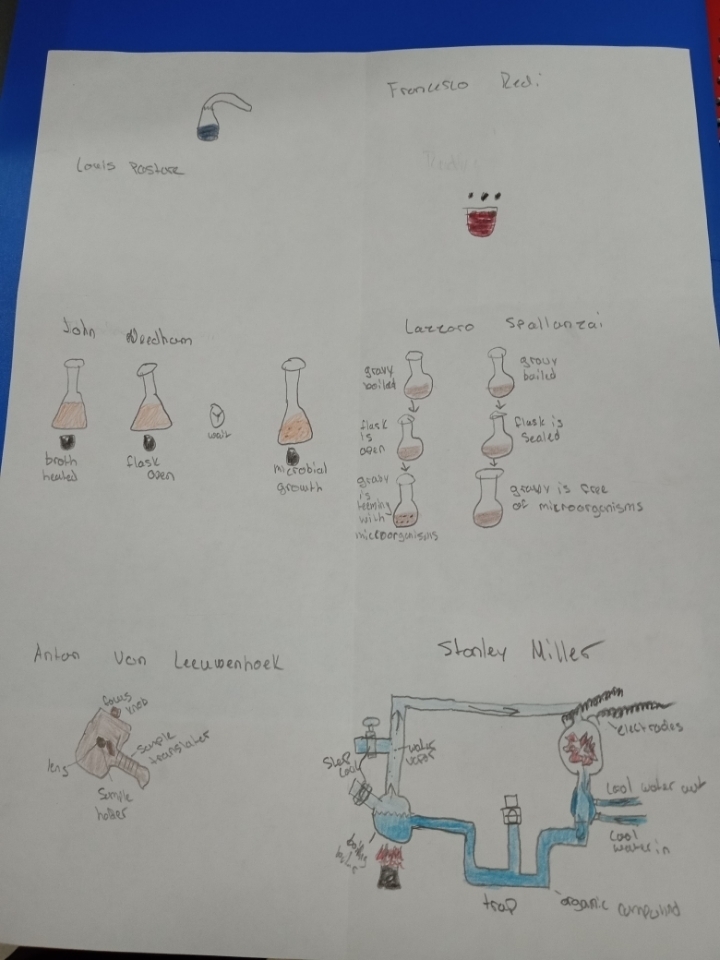 Louis Pastore
Francesco Redi
John Needham
broth
heated
flask
open
wait
microbial
growth
Lazzaro Spallanzai
gravy
boiled
flask
is
open
gravy
is
teeming
with
microorganisms
gravy
boiled
flask is
sealed
gravy is free
of microorganisms
Anton Van Leeuwenhoek
focus
knob
lens
sample
translater
sample
holder
Stanley Miller
electrodes
water
vapor
Stop
cool water out
cool
water in
trap
organic